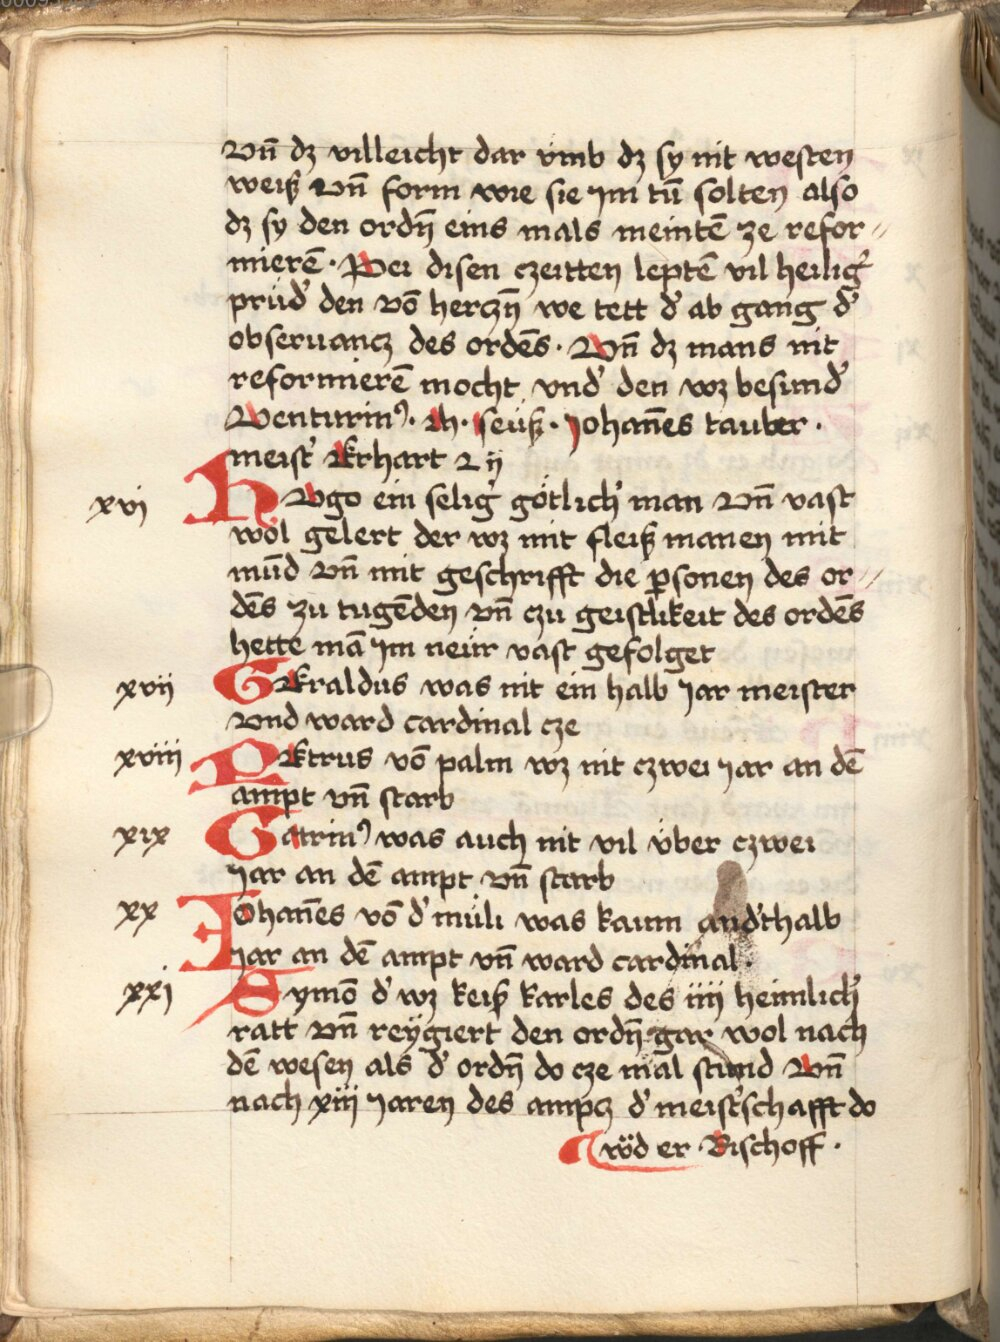 vn̄ dʒ villeicht dar vmb dʒ sy nit westen
weiß vn̄ form wie sie ym tū solten also
dʒ sy den ordn̄ eins mals meintē ze refor//
mierē · Bei disen czeitten leptē vil heilig'
prüd' den vō herczn̄ we tett d' ab gang d'
obseruancz des ordēs · Vn̄ dʒ mans nit
reformierē mocht vnd' den wʒ besund'
Venturin9 · h · seuß · Johan̄es tauber ·
meist' Ekhart 2 ij
xvi HVgo ein selig' götlich' man vn̄ vast
wol gelert der wʒ mit fleiß manen mit
mūd vn̄ mit geschrifft die psonen des or//
dēs zu tugēden vn̄ czu geistlikeit des ordēs
hette mā ym neür vast gefolget
xvii GEraldus was nit ein halb jar meister
vnd ward cardinal cze
xviii PEtrus vō palm wʒ nit czwei jar an dē
ampt vn̄ starb
xix Gatrin9 was auch nit vil über czwei
jar an dē ampt vn̄ starb
xx Johan̄es vō d' müli was kaum and'thalb
jar an dē ampt vn̄ ward cardinal ·
xxi Symō d' wʒ keiß karles des iiij heimlich'
ratt vn̄ reygiert den ordn̄ gar wol nach
dē wesen als d' ordn̄ do cze mal stund Vn̄
nach xiij jaren des ampcz d' meist'schafft do
würd er · Bischoff ·